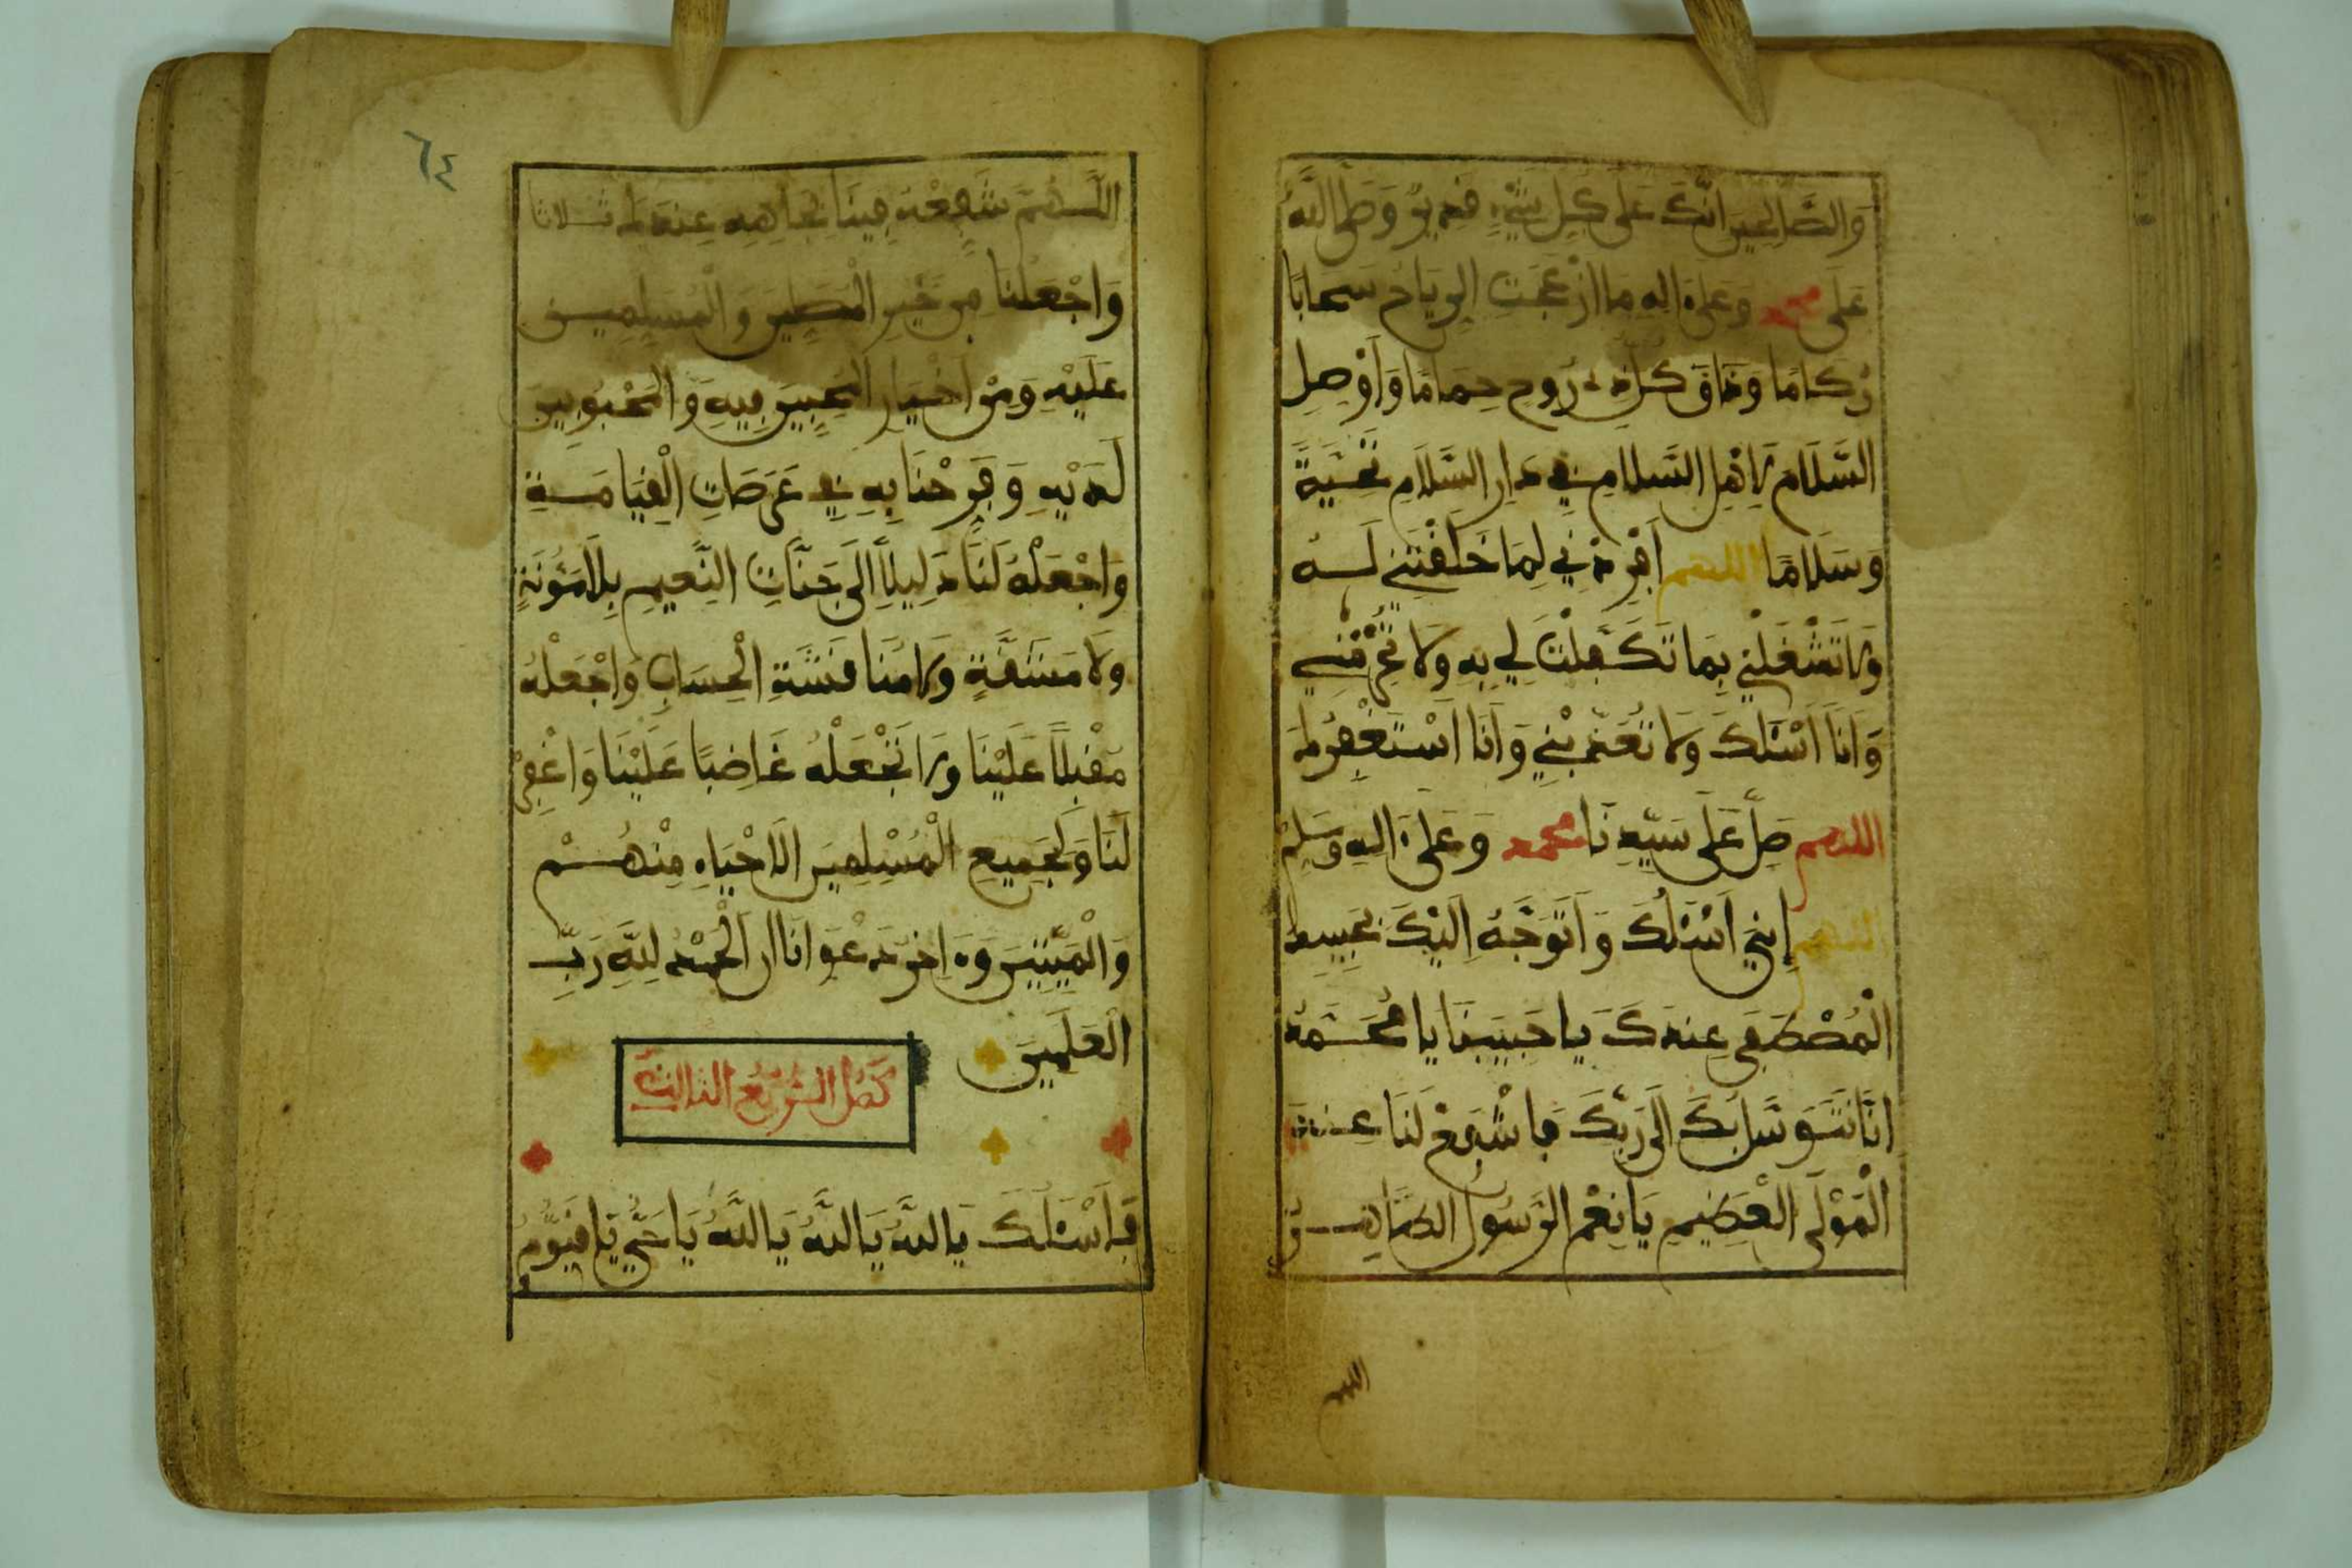 وَالصَّالِحِينَ إِنَّكَ عَلَى كُلِّ شَيْءٍ قَدِيرٌ وَصَلَّى اللَّهُ
عَلَى محمد وَعَلَى ءَالِهِ مَا ازْعَجَتِ الرِّيَاحُ سَحَابًا
رُكَامًا وَذَاقَ كُلُّ ذِي رُوحٍ حِمَامًا وَأَوْصِلِ
السَّلَامَ لِأَهْلِ السَّلَامِ فِي دَارِ السَّلَامِ تَحِيَّةً
وَسَلَامًا اللهم أَفْرِدْنِي لِمَا خَلَقْتَنِي لَهُ
وَلَا تَشْغَلْنِي بِمَا تَكَفَّلْتَ لِي بِهِ وَلَا تَحْرِمْنِي
وَأَنَا أَسْئَلُكَ وَلَا تُعَذِّبْنِي وَأَنَا أَسْتَغْفِرُكَ
اللهم صَلِّ عَلَى سَيِّدِنَا محمد وَعَلَى ءَالِهِ وَسَلِّمْ
اللهم إِنِّي أَسْئَلُكَ وَأَتَوَجَّهُ إِلَيْكَ بِحَبِيبِكَ
الْمُصْطَفَى عِنْدَكَ يَا حَبِيبَنَا يَا مُحَمَّدُ
إِنَّا نَتَوَسَّلُ بِكَ إِلَى رَبِّكَ فَاشْفَعْ لَنَا عِنْدَ
الْمَوْلَى الْعَظِيمِ يَا نِعْمَ الرَّسُولُ الطَّاهِرُ
اللهم
٦٤
اللَّهُمَّ شَفِّعْهُ فِينَا بِجَاهِهِ عِنْدَكَ ثَلَاثًا
وَاجْعَلْنَا مِنْ خَيْرِ الْمُصَلِّينَ وَالْمُسَلِّمِينَ
عَلَيْهِ وَمِنْ أَخْيَارِ الْمُحِبِّينَ فِيهِ وَالْمَحْبُوبِينَ
لَدَيْهِ وَفَرِّحْنَا بِهِ فِي عَرَصَاتِ الْقِيَامَةِ
وَاجْعَلْهُ لَنَا دَلِيلًا إِلَى جَنَّاتِ النَّعِيمِ بِلَا مَئُونَةٍ
وَلَا مَشَقَّةٍ وَلَا مُنَاقَشَةِ الْحِسَابِ وَاجْعَلْهُ
مُقْبِلًا عَلَيْنَا وَلَا تَجْعَلْهُ غَاضِبًا عَلَيْنَا وَاغْفِرْ
لَنَا وَلِجَمِيعِ الْمُسْلِمِينَ الْأَحْيَاءِ مِنْهُمْ
وَالْمَيِّتِينَ وَءَاخِرُ دَعْوَانَا أَنِ الْحَمْدُ لِلَّهِ رَبِّ
الْعَلَمِينَ
كَمُلَ الرُّبُعُ الثَّالِثُ
فَأَسْئَلُكَ يَا اللَّهُ يَا اللَّهُ يَا اللَّهُ يَا حَيُّ يَا قَيُّومُ